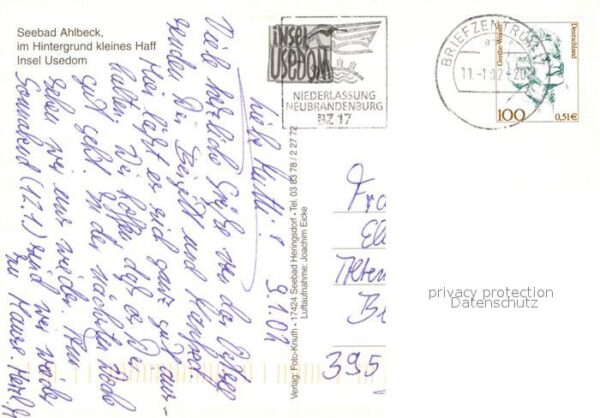 Seebad Ahlbeck,
im Hintergrund kleines Haff
Insel Usedom
insel
USEDOM
NIEDERLASSUNG
NEUBRANDENBURG
BZ 17
BRIEFZENTRUM
11.-1.02-20
Grethe Weiser
Deutschland
100
0,51€
Verlag: Foto-Knuth · 17424 Seebad Heringsdorf · Tel. 03 83 78 / 2 27 72
Luftaufnahme: Joachim Eicke
9.1.02
Liebe Mutti!
Viele herzliche Grüße von der Ostsee
senden Dir Brigitt und
Hier läßt es sich ganz gut aus-
halten. Wir hoffen daß es Dir
gut geht. In der nächsten Woche
sehen wir uns wieder. Am
Sonnabend (12.1) sind wir wieder
zu Hause. Herzl.
Fra
El
Alten
B
395
privacy protection
Datenschutz